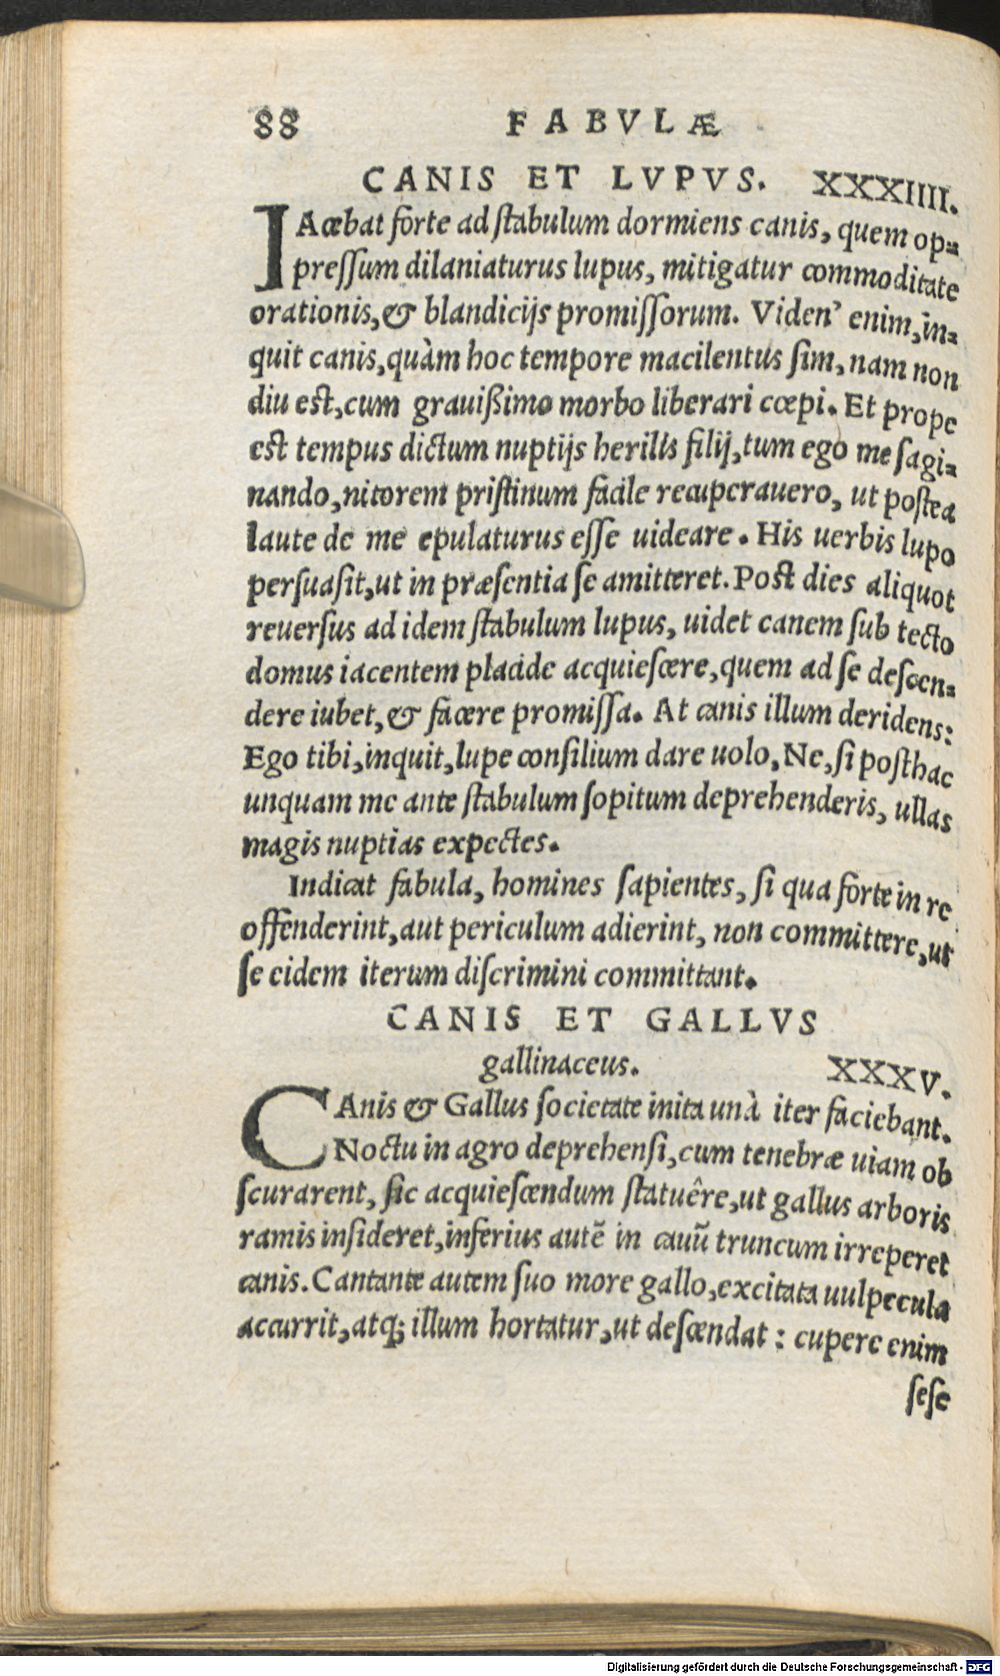 88 FABVLÆ
CANIS ET LVPVS. XXXIIII.
IAcebat forte ad ſtabulum dormiens canis, quem op-
preſſum dilaniaturus lupus, mitigatur commoditate
orationis, & blandicijs promiſſorum. Viden' enim, in-
quit canis, quàm hoc tempore macilentus ſim, nam non
diu est, cum grauißimo morbo liberari cœpi. Et prope
est tempus dictum nuptijs herilis filij, tum ego me ſagi-
nando, nitorem priſtinum facile recuperauero, ut poſtea
laute de me epulaturus eſſe uideare. His uerbis lupo
perſuaſit, ut in præſentia ſe amitteret. Post dies aliquot
reuerſus ad idem ſtabulum lupus, uidet canem ſub tecto
domus iacentem placide acquieſcere, quem ad ſe deſcen-
dere iubet, & facere promiſſa. At canis illum deridens:
Ego tibi, inquit, lupe conſilium dare uolo, Ne, ſi poſthac
unquam me ante ſtabulum ſopitum deprehenderis, ullas
magis nuptias expectes.
Indicat fabula, homines ſapientes, ſi qua forte in re
offenderint, aut periculum adierint, non committere, ut
ſe eidem iterum diſcrimini committant.
CANIS ET GALLVS
gallinaceus. XXXV.
CAnis & Gallus ſocietate inita unà iter faciebant.
Noctu in agro deprehenſi, cum tenebræ uiam ob
ſcurarent, ſic acquieſcendum ſtatuêre, ut gallus arboris
ramis inſideret, inferius autẽ in cauũ truncum irreperet
canis. Cantante autem ſuo more gallo, excitata uulpecula
accurrit, atq; illum hortatur, ut deſcendat: cupere enim
ſeſe
Digitalisierung gefördert durch die Deutsche Forschungsgemeinschaft - DFG